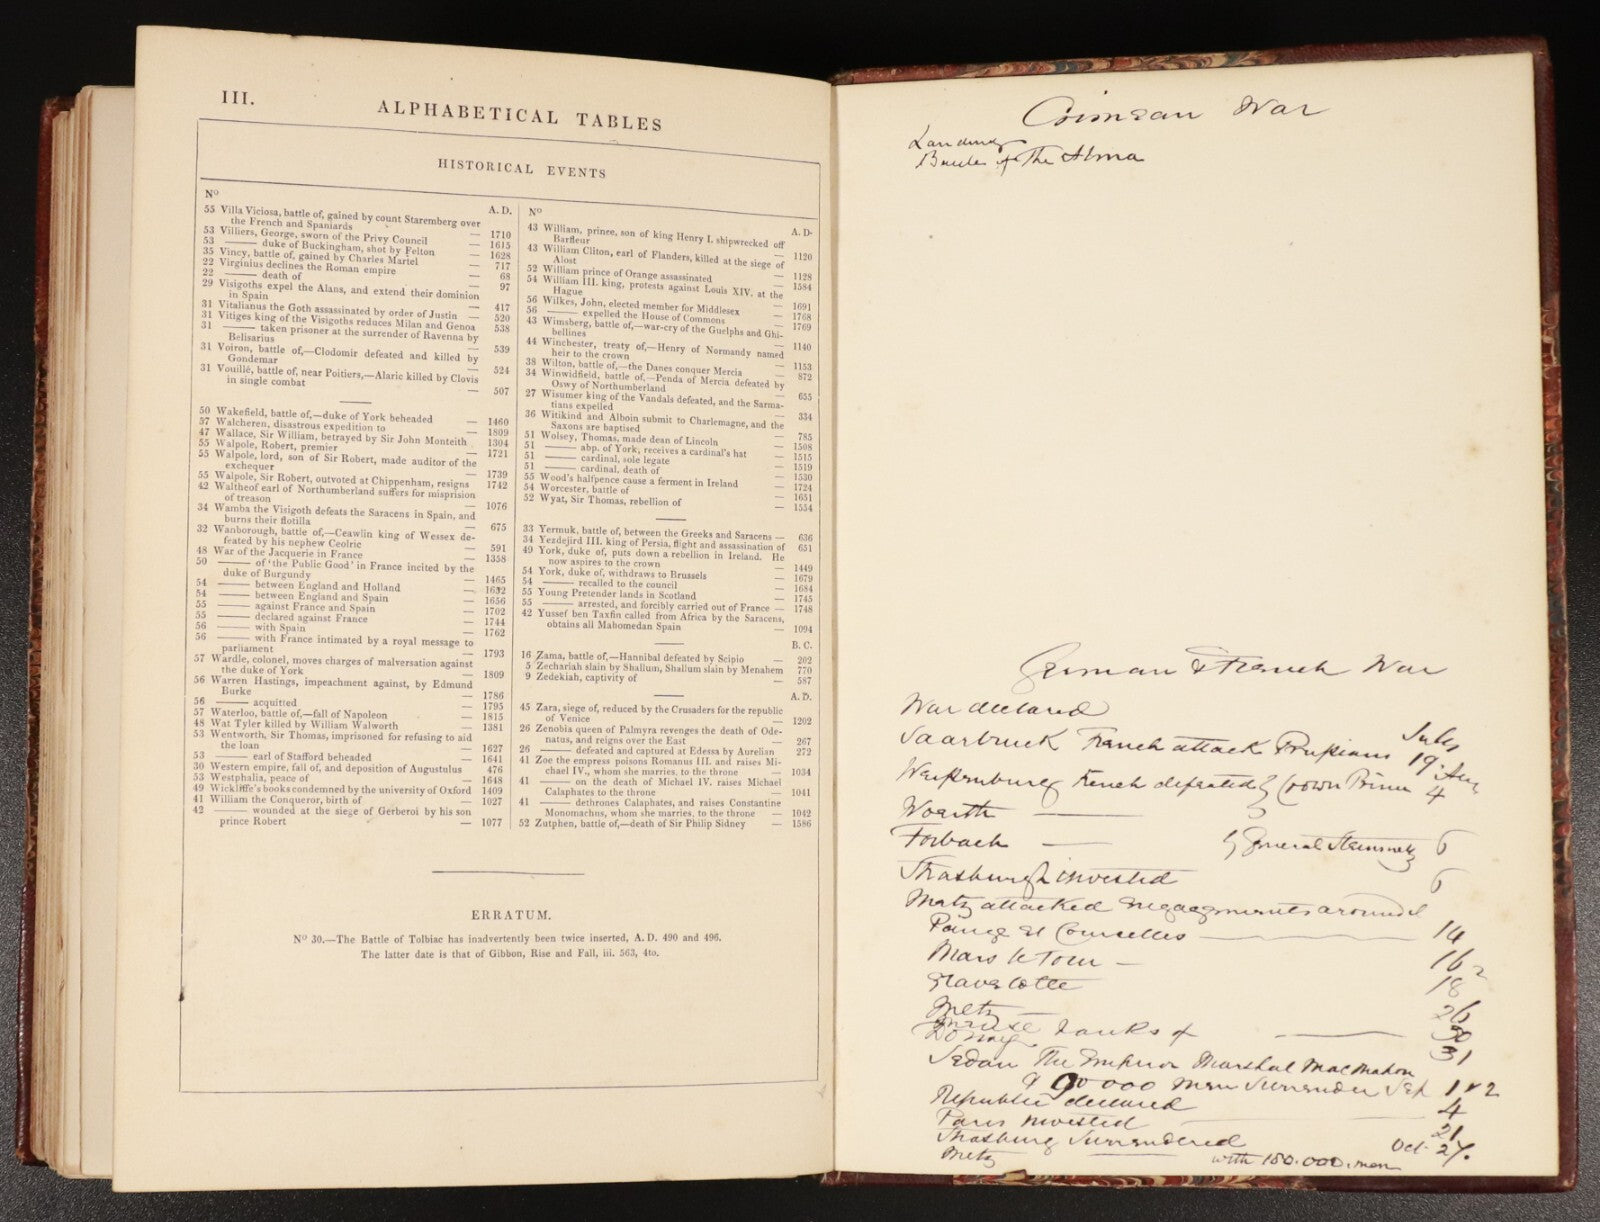 III.
ALPHABETICAL TABLES
HISTORICAL EVENTS
Nº
A. D.
55 Villa Viciosa, battle of, gained by count Staremberg over
the French and Spaniards — 1710
53 Villiers, George, sworn of the Privy Council — 1615
53 —— duke of Buckingham, shot by Felton — 1628
35 Vincy, battle of, gained by Charles Martel — 717
22 Virginius declines the Roman empire — 68
22 —— death of — 97
29 Visigoths expel the Alans, and extend their dominion
in Spain — 417
31 Vitalianus the Goth assassinated by order of Justin — 520
31 Vitiges king of the Visigoths reduces Milan and Genoa 538
31 —— taken prisoner at the surrender of Ravenna by
Belisarius — 539
31 Voiron, battle of,—Clodomir defeated and killed by
Gondemar — 524
31 Vouillé, battle of, near Poitiers,—Alaric killed by Clovis
in single combat — 507
50 Wakefield, battle of,—duke of York beheaded — 1460
57 Walcheren, disastrous expedition to — 1809
47 Wallace, Sir William, betrayed by Sir John Monteith 1304
55 Walpole, Robert, premier — 1721
55 Walpole, lord, son of Sir Robert, made auditor of the
exchequer — 1739
55 Walpole, Sir Robert, outvoted at Chippenham, resigns 1742
42 Waltheof earl of Northumberland suffers for misprision
of treason — 1076
34 Wamba the Visigoth defeats the Saracens in Spain, and
burns their flotilla — 675
32 Wanborough, battle of,—Ceawlin king of Wessex de-
feated by his nephew Ceolric — 591
48 War of the Jacquerie in France — 1358
50 —— of 'the Public Good' in France incited by the
duke of Burgundy — 1465
54 —— between England and Holland — 1652
54 —— between England and Spain — 1656
55 —— against France and Spain — 1702
55 —— declared against France — 1744
56 —— with Spain — 1762
56 —— with France intimated by a royal message to
parliament — 1793
57 Wardle, colonel, moves charges of malversation against
the duke of York — 1809
56 Warren Hastings, impeachment against, by Edmund
Burke — 1786
56 —— acquitted — 1795
57 Waterloo, battle of,—fall of Napoleon — 1815
48 Wat Tyler killed by William Walworth — 1381
53 Wentworth, Sir Thomas, imprisoned for refusing to aid
the loan — 1627
53 —— earl of Stafford beheaded — 1641
30 Western empire, fall of, and deposition of Augustulus 476
53 Westphalia, peace of — 1648
49 Wickliffe's books condemned by the university of Oxford 1409
41 William the Conqueror, birth of — 1027
42 —— wounded at the siege of Gerberoi by his son
prince Robert — 1077
Nº
A. D.
43 William, prince, son of king Henry I. shipwrecked off
Barfleur — 1120
43 William Cliton, earl of Flanders, killed at the siege of
Alost — 1128
52 William prince of Orange assassinated — 1584
54 William III. king, protests against Louis XIV. at the
Hague — 1691
56 Wilkes, John, elected member for Middlesex — 1768
56 —— expelled the House of Commons — 1769
43 Wimsberg, battle of,—war-cry of the Guelphs and Ghi-
bellines — 1140
44 Winchester, treaty of,—Henry of Normandy named
heir to the crown — 1153
38 Wilton, battle of,—the Danes conquer Mercia — 872
34 Winwidfield, battle of,—Penda of Mercia defeated by
Oswy of Northumberland — 655
27 Wisumer king of the Vandals defeated, and the Sarma-
tians expelled — 334
36 Witikind and Alboin submit to Charlemagne, and the
Saxons are baptised — 785
51 Wolsey, Thomas, made dean of Lincoln — 1508
51 —— abp. of York, receives a cardinal's hat — 1515
51 —— cardinal, sole legate — 1519
51 —— cardinal, death of — 1530
55 Wood's halfpence cause a ferment in Ireland — 1724
54 Worcester, battle of — 1651
52 Wyat, Sir Thomas, rebellion of — 1554
33 Yermuk, battle of, between the Greeks and Saracens — 636
34 Yezdejird III. king of Persia, flight and assassination of 651
49 York, duke of, puts down a rebellion in Ireland. He
now aspires to the crown — 1449
54 York, duke of, withdraws to Brussels — 1679
54 —— recalled to the council — 1684
55 Young Pretender lands in Scotland — 1745
55 —— arrested, and forcibly carried out of France — 1748
42 Yussef ben Taxfin called from Africa by the Saracens,
obtains all Mahomedan Spain — 1094
B. C.
16 Zama, battle of,—Hannibal defeated by Scipio — 202
5 Zechariah slain by Shallum, Shallum slain by Menahem 770
9 Zedekiah, captivity of — 587
A. D.
45 Zara, siege of, reduced by the Crusaders for the republic
of Venice — 1202
26 Zenobia queen of Palmyra revenges the death of Ode-
natus, and reigns over the East — 267
26 —— defeated and captured at Edessa by Aurelian 272
41 Zoe the empress poisons Romanus III. and raises Mi-
chael IV., whom she marries, to the throne — 1034
41 —— on the death of Michael IV. raises Michael
Calaphates to the throne — 1041
41 —— dethrones Calaphates, and raises Constantine
Monomachus, whom she marries, to the throne — 1042
52 Zutphen, battle of,—death of Sir Philip Sidney — 1586
ERRATUM.
Nº 30.—The Battle of Tolbiac has inadvertently been twice inserted, A. D. 490 and 496.
The latter date is that of Gibbon, Rise and Fall, iii. 563, 4to.
Crimean War
Landing
Battle of The Alma
German & French War
War declared July
Saarbruck French attack Prussians 19. Aug
Weissenburg French defeated Crown Prince 4
Woerth ——
Forbach —— by General Steinmetz 6
Strasburgh invested 6
Metz attacked engagements around
Pange et Courcelles —— 14
Mars le Tour — 16
Gravelotte 18
Metz 26
Meuse banks of —— 30
Douzy 31
Sedan The Emperor Marshal MacMahon
& 90 000 men surrender Sep 1 & 2
Republic declared 4
Paris invested —— 21
Strasburg surrendered
Metz —— with 150.000. men Oct. 27.